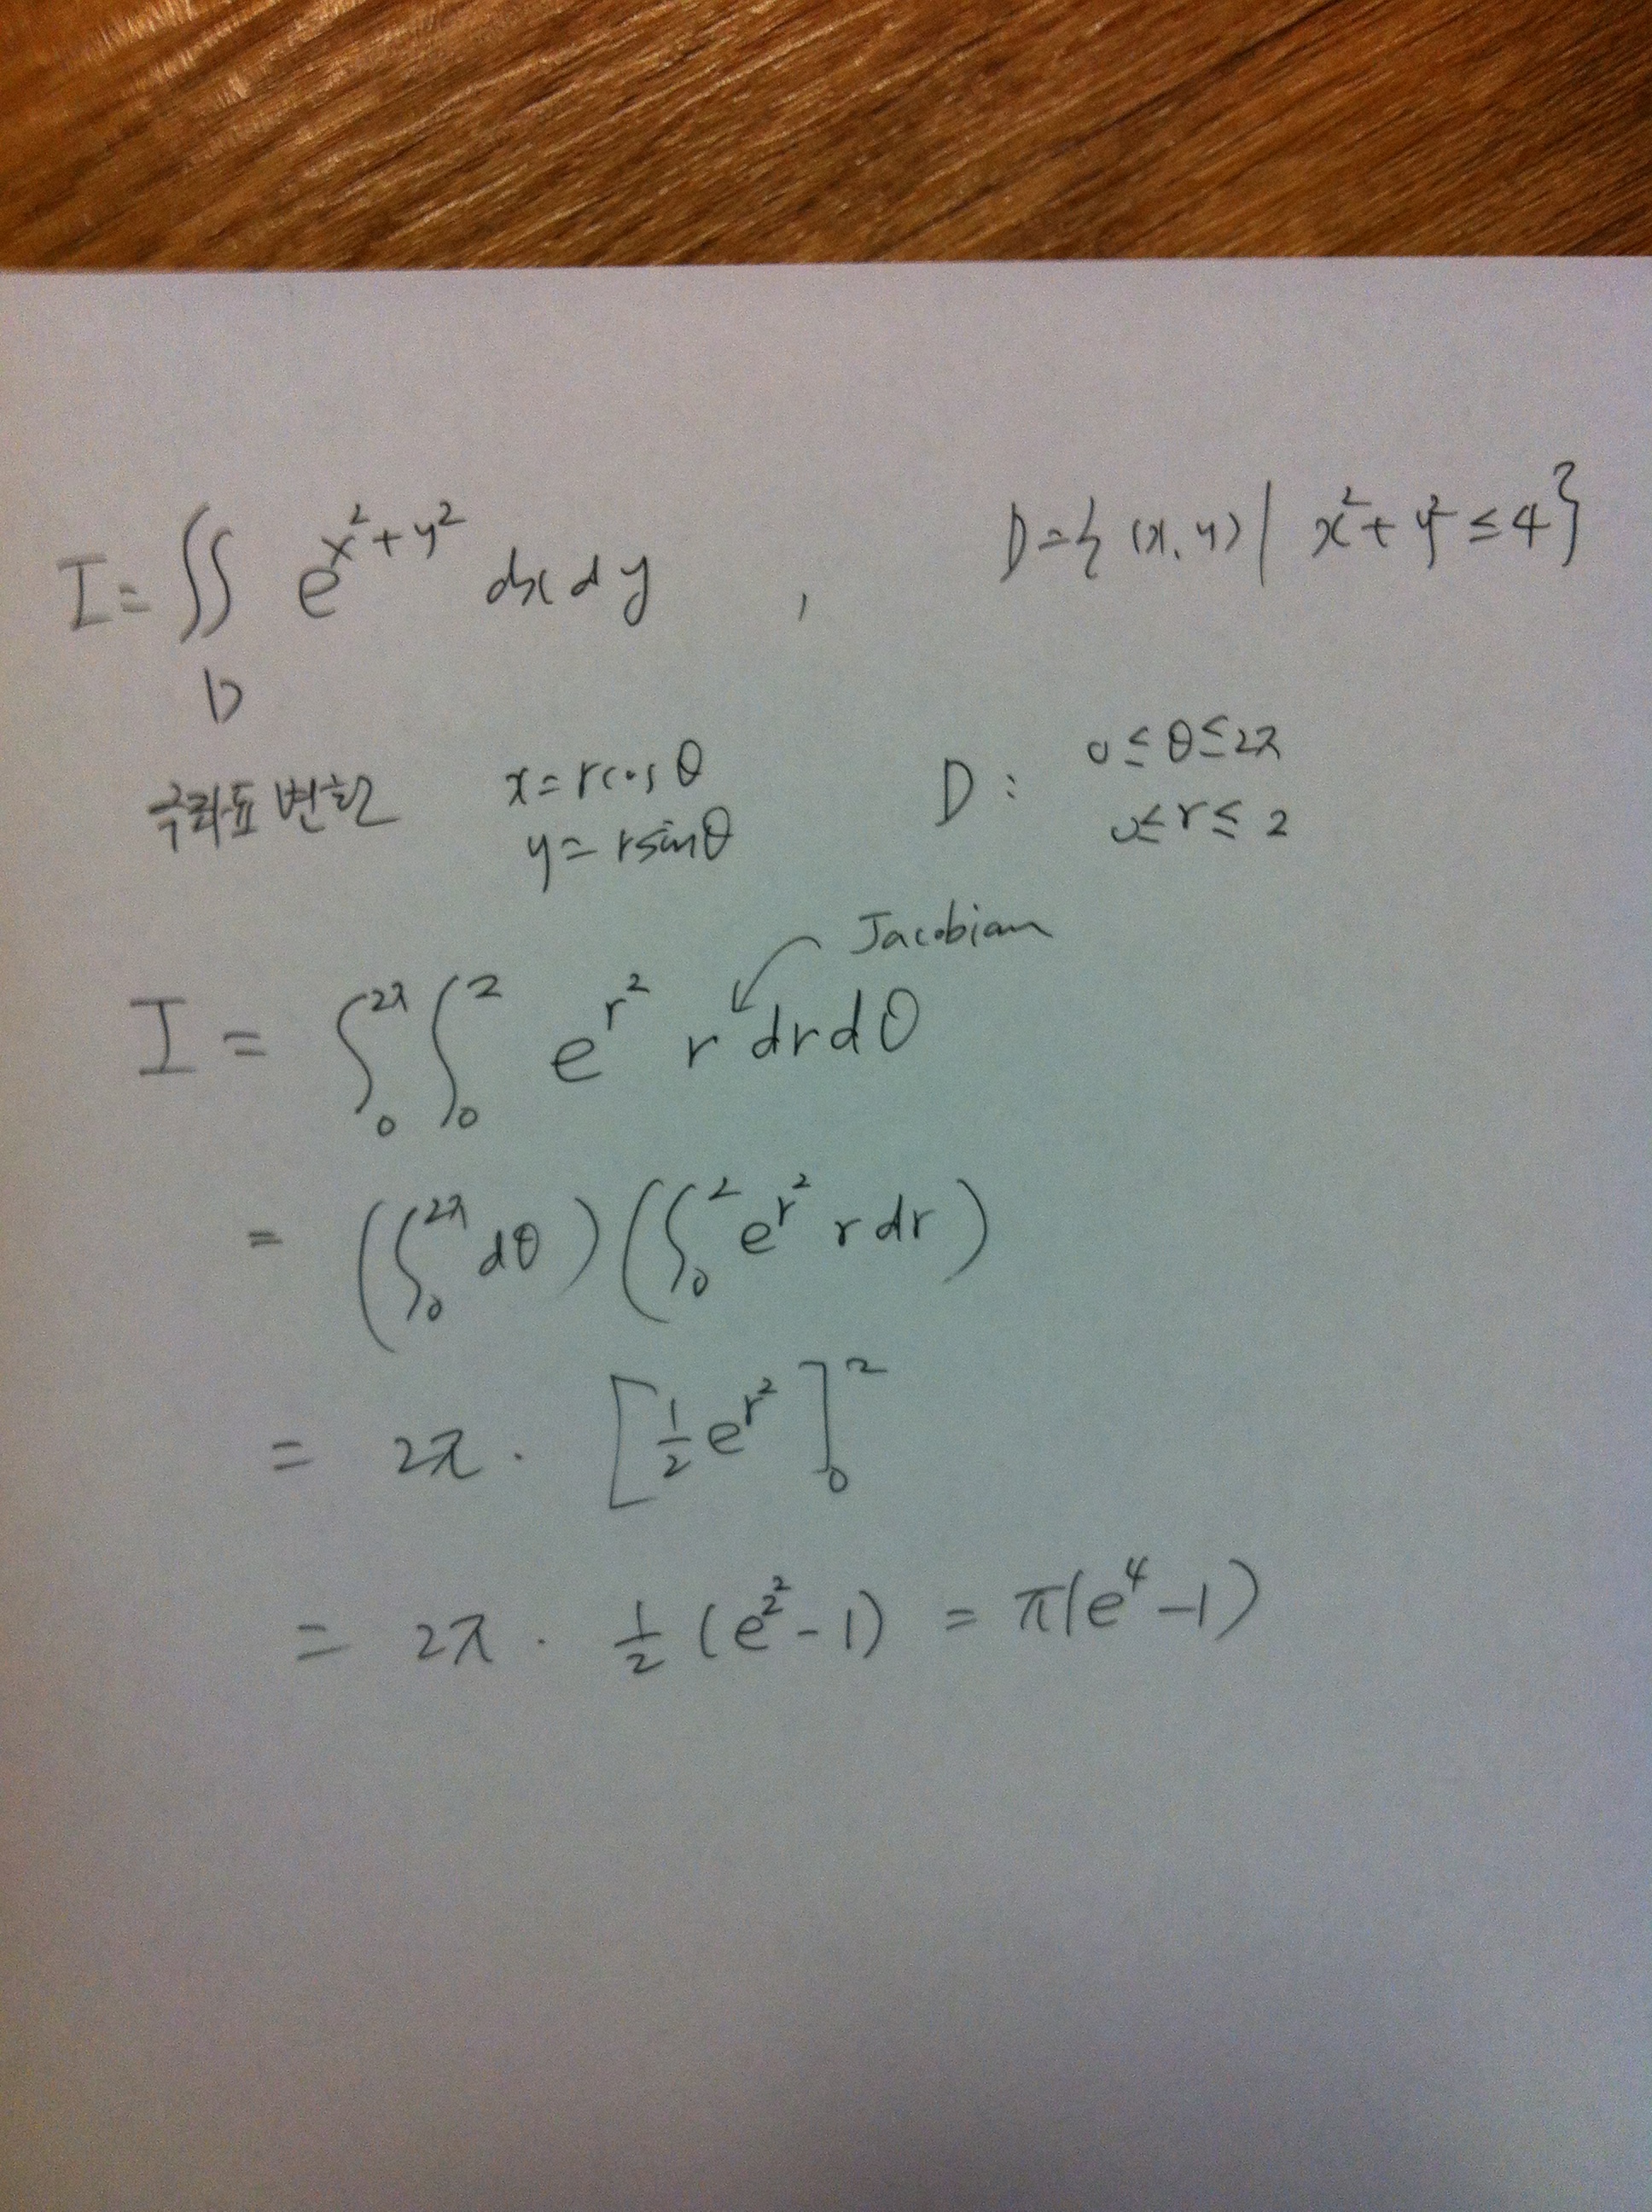 I = ∬ e^{x²+y²} dx dy , D = { (x, y) | x² + y² ≤ 4 }
D
극좌표 변환 x = r cos θ D : 0 ≤ θ ≤ 2π
y = r sin θ 0 ≤ r ≤ 2
Jacobian
I = ∫₀^{2π} ∫₀^{2} e^{r²} r dr dθ
= ( ∫₀^{2π} dθ ) ( ∫₀^{2} e^{r²} r dr )
= 2π · [ ½ e^{r²} ]₀²
= 2π · ½ ( e^{2²} - 1 ) = π( e⁴ - 1 )